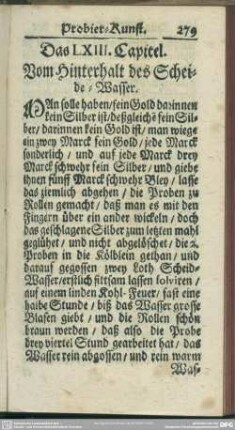 Probier-Kunst. 279
Das LXIII. Capitel.
Vom Hinterhalt des Schei-
de-Wasser.
MAn solle haben/sein Gold darinnen
kein Silber ist/deßgleichē fein Sil-
ber/darinnen kein Gold ist/ man wiege
ein zwey Marck fein Gold/jede Marck
sonderlich / und auf jede Marck drey
Marck schwehr fein Silber/ und giebe
ihnen fünff Marck schwehr Bley / lasse
das ziemlich abgehen / die Proben zu
Rollen gemacht/ daß man es mit den
Fingern über ein ander wickeln / doch
das geschlagene Silber zum letzten mahl
geglühet / und nicht abgelöschet/ die 2.
Proben in die Kölblein gethan / und
darauf gegossen zwey Loth Scheid-
Wasser/erstlich fittsam lassen solviren /
auf einem linden Kohl-Feuer/ fast eine
halbe Stunde / biß das Wasser grosse
Blasen giebt / und die Rollen schön
braun werden / daß also die Probe
drey viertel Stund gearbeitet hat / das
Wasser rein abgossen / und rein warm
Was-